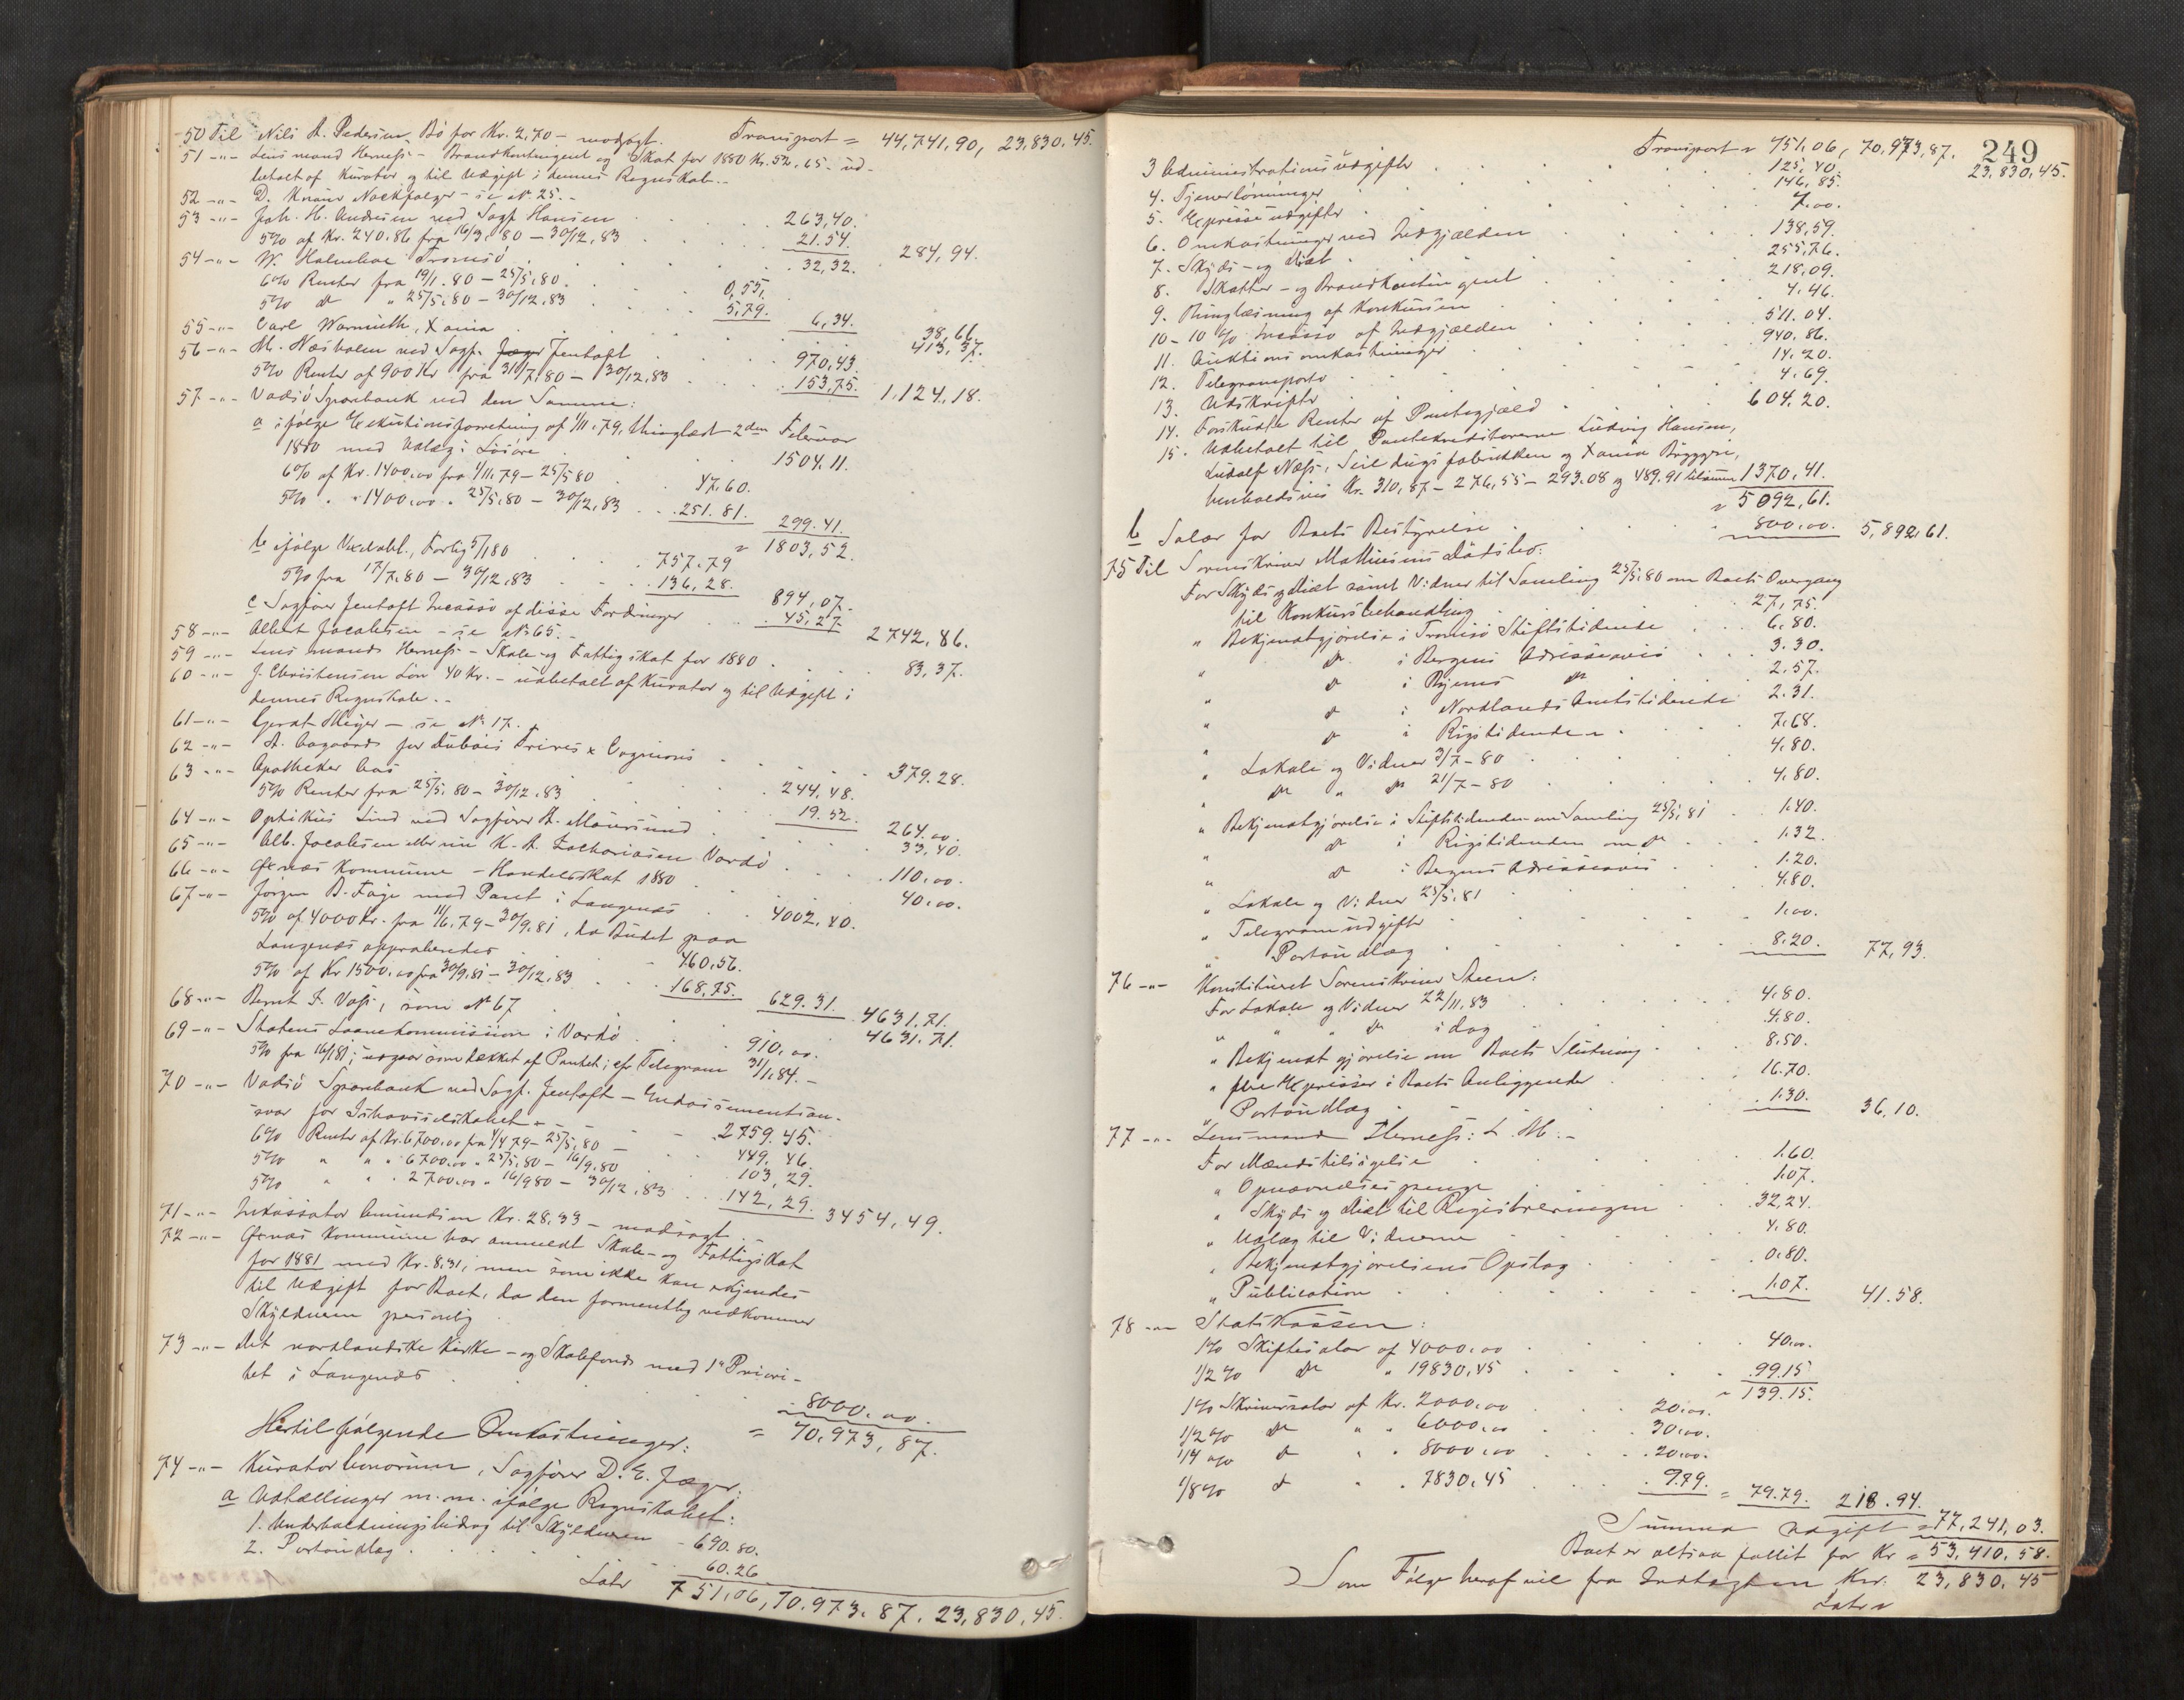 50 Til Nils A. Pedersen, Bö for Kr. 2,70 – modsagt. Transport = 44,741,90, 23,830,45.
51 -"- Lensmand Herness – Brandkontingent og Skat for 1880 Kr. 52,65 – ud-
betalt af Kurator og til Udgift i dennes Regnskab. –
52 -"- D. Knaus Nachfolger – se No 25. –
53 -"- Joh. H. Andresen ved Sagf. Hansen 263,40.
5% af Kr. 240.86 fra 16/3.80 – 30/12.83 21.54. 284,94.
54 -"- W. Holmboe Tromsö 32,32.
6% Renter fra 19/1.80 – 25/5.80 0,55,
5% do " 25/5.80 – 30/12.83 5,79. 6,34. 38,66.
55 -"- Carl Warmuth, Xania 413,37.
56 -"- M. Næsholm ved Sagf. Jentoft 970,43.
5% Renter af 900 Kr fra 31/7.80 – 30/12.83 153,75. 1,124,18.
57 -"- Vadsö Sparebank ved den Samme:
a ifølge Exekutionsforretning af 1/11.79, thinglæst 2den Februar
1880 med Udlæg i Lösöre 1504.11.
6% af Kr. 1400.00 fra 1/11.79 – 25/5 80 47.60.
5% " " 1400.00 " 25/5.80 – 30/12.83 251.81. 299.41.
= 1803,52.
b ifølge Vexelobl., Forlig 5/1 80 757.79
5% fra 17/7.80 – 30/12.83 136,28. 894,07.
c Sagfører Jentoft Incasso af disse Fordringer 45,27 2742,86.
58 -"- Albert Jacobsen – se No 65. –
59 -"- Lensmands Herness – Skole- og Fattigskat for 1880 83,37.
60 -"- J. Christensen Lön 40 Kr. – udbetalt af Kurator og til Udgift i
dennes Regnskab. –
61 -"- Gerat Meyer – se No 17.
62 -"- A. Aagaards for Dubois Frires & Cagnions 379.28.
63 -"- Apotheker Aas 244,48.
5% Renter fra 25/5.80 – 30/12.83 19.52. 264.00.
64 -"- Optikus Lind ved Sagfører A. Moursund 33,40.
65 -"- Alb. Jacobsen eller nu K. A. Zachariasen Vardö 110,00.
66 -"- Öxnæs Kommune – Handelsskat 1880 40,00.
67 -"- Jörgen B. Faye med Pant i Langenæs 4002,40.
5% af 4000 Kr. fra 11/6.79 – 30/9.81, da Budet paa
Langenæs approberedes 460,56.
5% af Kr 1500.00 fra 30/9.81 – 30/12.83 168,75. 629.31. 4631,71.
68 -"- Bernt F. Voss, som No 67 4631.71.
69 -"- Statens Laanekommission i Vardö 910,00.
5% fra 16/1 81; udgaar som dækket af Pantet; cfr Telegram 31/1.84. –
70 -"- Vadsö Sparebank ved Sagf. Jentoft – Endossementsan-
svar for Ishavsselskabet 2759.45.
6% Renter af Kr. 6700.00 fra 1/4 79 – 25/5.80 449.46.
5% " " " 6700.00 " 25/5.80 – 16/9.80 103,29.
5% " " " 2700.00 " 16/9 80 – 30/12.83 142,29. 3454,49.
71 -"- Inkassator Amundsen Kr. 28,33 – modsagt. –
72 -"- Öxnæs Kommune har anmeldt Skole- og Fattigskat
for 1881 med Kr. 8,31, men som ikke kan erkjendes
til Udgift for Boet, da den formentlig vedkommer
Skyldneren personlig
73 -"- Det nordlandske Kirke- og Skolefond med 1ste Priori-
tet i Langenæs 8000.00.
= 70,973,87.
Hertil følgende Omkostninger:
74 -"- Kurator bonorum, Sagfører D. E. Jæger:
a Udtællinger m. m. ifølge Regnskabet:
1. Underholdningsbidrag til Skyldneren 690.80.
2. Portoudlæg 60.26
Latr 751,06, 70.973.87. 23,830,45.
249
Transport = 751,06, 70,973,87. 23,830,45.
3 Administrationsudgifter 125,40.
4. Tjenerlönninger 146,85.
5. Expresseudgifter 7.00.
6. Omkostninger ved Indgjælden 138,59.
7. Skyds- og Diæt 255,76.
8. Skatter- og Brandkontingent 218,09.
9. Thinglæsning af Konkursen 4,46.
10 – 10% Incasso af Indgjælden 511.04.
11. Auktionsomkostninger 940.86.
12. Telegramporto 14.20.
13. Udskrifter 4.69.
14. Forskudte Renter af Pantegjæld 604.20.
15. Udbetalt til Pantekreditorerne Ludvig Hansen,
Ludolf Næss, Seildugsfabrikken og Xania Bryggeri,
henholdsvis Kr. 310,87 – 276,55 – 293.08 og 489.91 tilsammen 1370,41.
= 5092,61.
b Salær for Boets Bestyrelse 800,00. 5,892,61.
75 Til Sorenskriver Mathiesens Dödsbo:
For Skyds og Diæt samt Vidner til Samling 25/5.80 om Boets Overgang
til Konkursbehandling 27,75.
" Bekjendtgjörelse i Tromsö Stiftstidende 6.80.
" do i Bergens Adresseavis 3.30.
" do i Byens do 2.57.
" do i Nordlands Amtstidende 2.31.
" do i Rigstidenden 7.68.
" Lokale og Vidner 3/7 – 80 4.80.
" do " do 21/7 – 80 4,80.
" Bekjendtgjörelse i Stiftstidenden om Samling 25/5.81 1.40.
" do i Rigstidenden om do 1.32.
" do i Bergens Adresseavis 1.20.
" Lokale og Vidner 25/5.81 4.80.
" Telegramudgifter 1.00.
" Portoudlæg 8.20. 77,93.
76 -"- Konstitueret Sorenskriver Steen:
For Lokale og Vidner 22/11.83 4.80.
" " " do idag 4.80.
" Bekjendtgjörelse om Boets Slutning 8.50.
" flere Expresser i Boets Anliggender 16.70.
" Portoudlæg 1.30. 36,10.
77 -"- Lensmand Herness: L. M. –
For Mændstilsigelse 1.60.
" Opnævnelsespenge 1.07.
" Skyds og Diæt til Registreringen 32,24.
" Udlæg til Vidnerne 4.80.
" Bekjendtgjörelsens Opslag 0.80.
" Publication 1.07. 41.58.
78 -"- Statskassen:
1% Skiftesalær af 4000.00 40.00.
1/2% do " 19830,45 99.15
= 139.15.
1% Skriversalær af Kr. 2000.00 20.00.
1/2% do " " 6000.00 30.00.
1/4% do " " 8000.00 20.00.
1/8% do " " 7830.45 9.79. = 79.79. 218.94.
Summa Udgift = 77,241,03.
Boet er altsaa fallit for Kr = 53,410,58.
Som Følge heraf vil fra Indtægten Kr. 23,830,45
Latr =